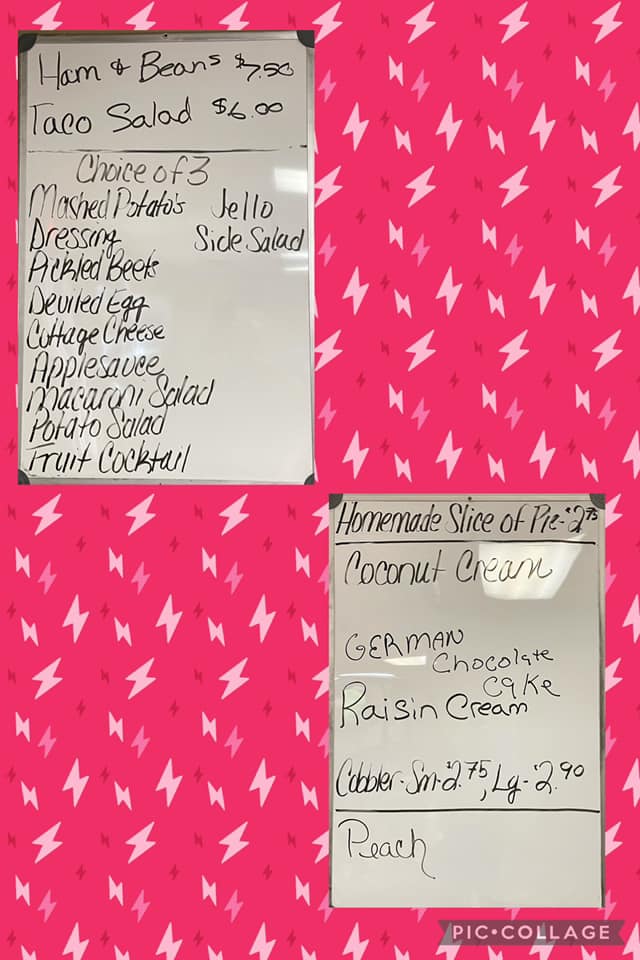 Ham & Beans $7.50
Taco Salad $6.00
Choice of 3
Mashed Potato's Jello
Dressing Side Salad
Pickled Beets
Deviled Egg
Cottage Cheese
Applesauce
Macaroni Salad
Potato Salad
Fruit Cocktail
Homemade Slice of Pie-$2.75
Coconut Cream
GERMAN
Chocolate
Cake
Raisin Cream
Cobbler-Sm-$2.75, Lg-$2.90
Peach
PIC•COLLAGE